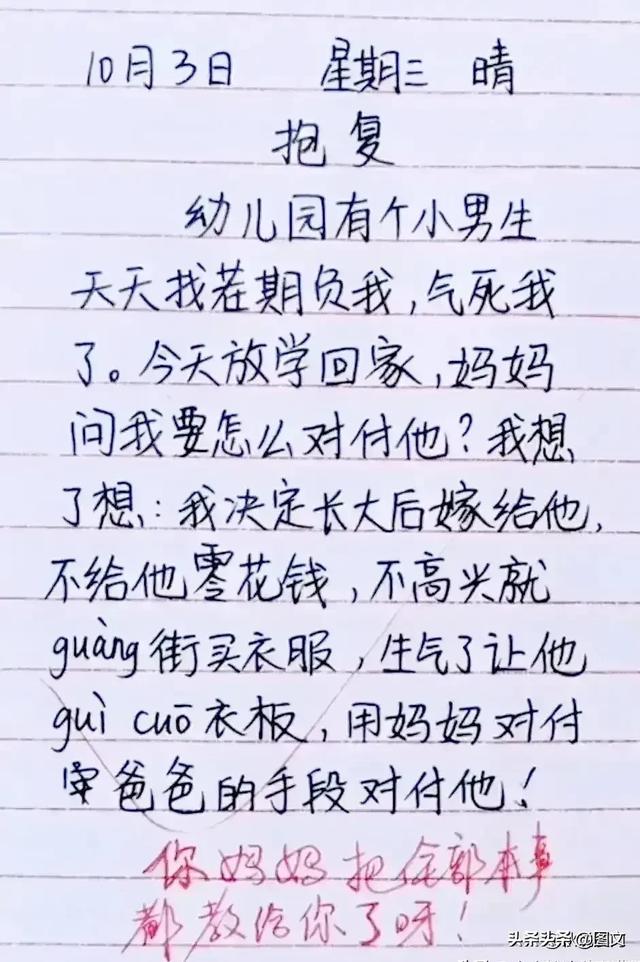 10月3日 星期三 晴
抱复
幼儿园有个小男生
天天找茬期负我,气死我
了。今天放学回家,妈妈
问我要怎么对付他?我想
了想:我决定长大后嫁给他,
不给他零花钱,不高兴就
guàng街买衣服,生气了让他
guì cuō衣板,用妈妈对付
爸爸的手段对付他!
你妈妈把全部本事
都教给你了呀!
头条 @图文